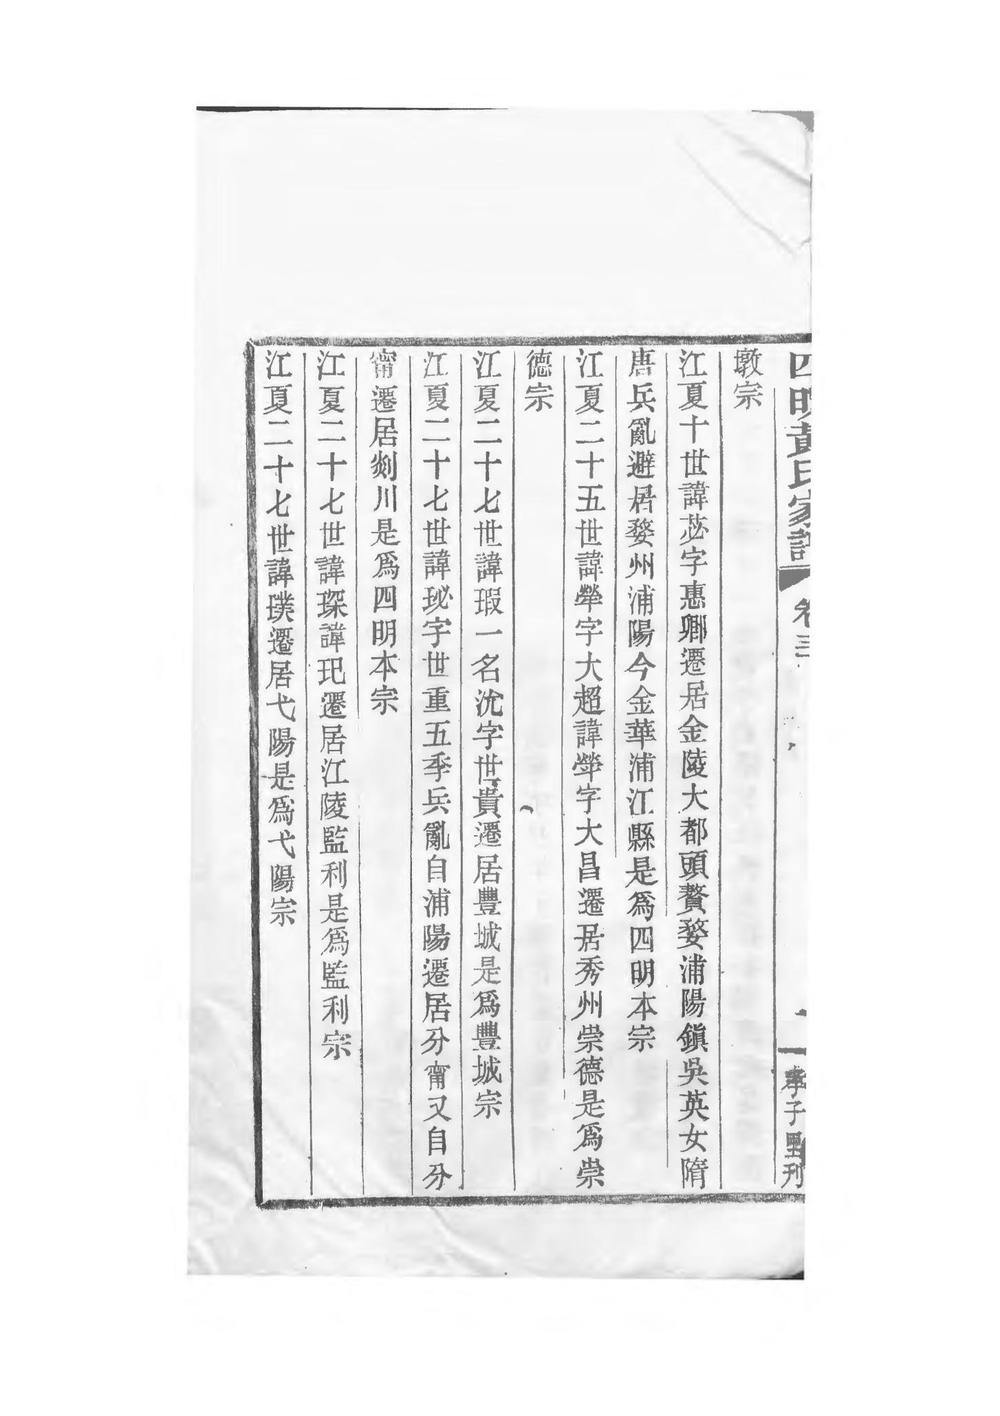 四明黃氏家譜 卷三 一 孝子墅刊
墩宗
江夏十世諱苾字惠卿遷居金陵大都頭贅婺浦陽鎮吳英女隋
唐兵亂避居婺州浦陽今金華浦江縣是爲四明本宗
江夏二十五世諱犖字大超諱犖字大昌遷居秀州崇德是爲崇
德宗
江夏二十七世諱瑕一名沇字世貴遷居豐城是爲豐城宗
江夏二十七世諱珌字世重五季兵亂自浦陽遷居分甯又自分
甯遷居剡川是爲四明本宗
江夏二十七世諱琛諱玘遷居江陵監利是爲監利宗
江夏二十七世諱璞遷居弋陽是爲弋陽宗